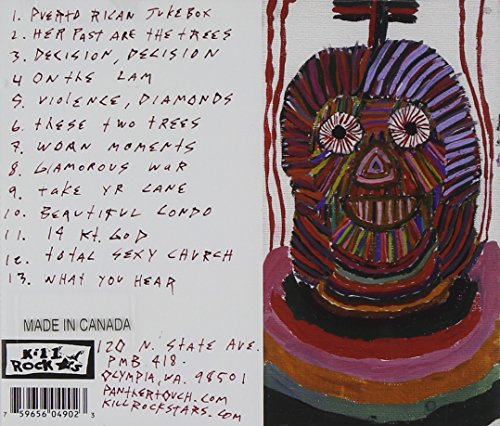 1. PUERTO RICAN JUKEBOX
2. HER PAST ARE THE TREES
3. DECISION, DECISION
4 ON THE LAM
5. VIOLENCE, DIAMONDS
6. THESE TWO TREES
7. WORN MOMENTS
8. GLAMOROUS WAR
9. TAKE YR LANE
10. BEAUTIFUL CONDO
11. 14 KT. GOD
12. TOTAL SEXY CHURCH
13. WHAT YOU HEAR
MADE IN CANADA
KILL
ROCK STARS
120 N. STATE AVE.
PMB 418.
OLYMPIA, WA. 98501
PANTHERTOUCH.COM
KILLROCKSTARS.COM
7 59656 04902 3